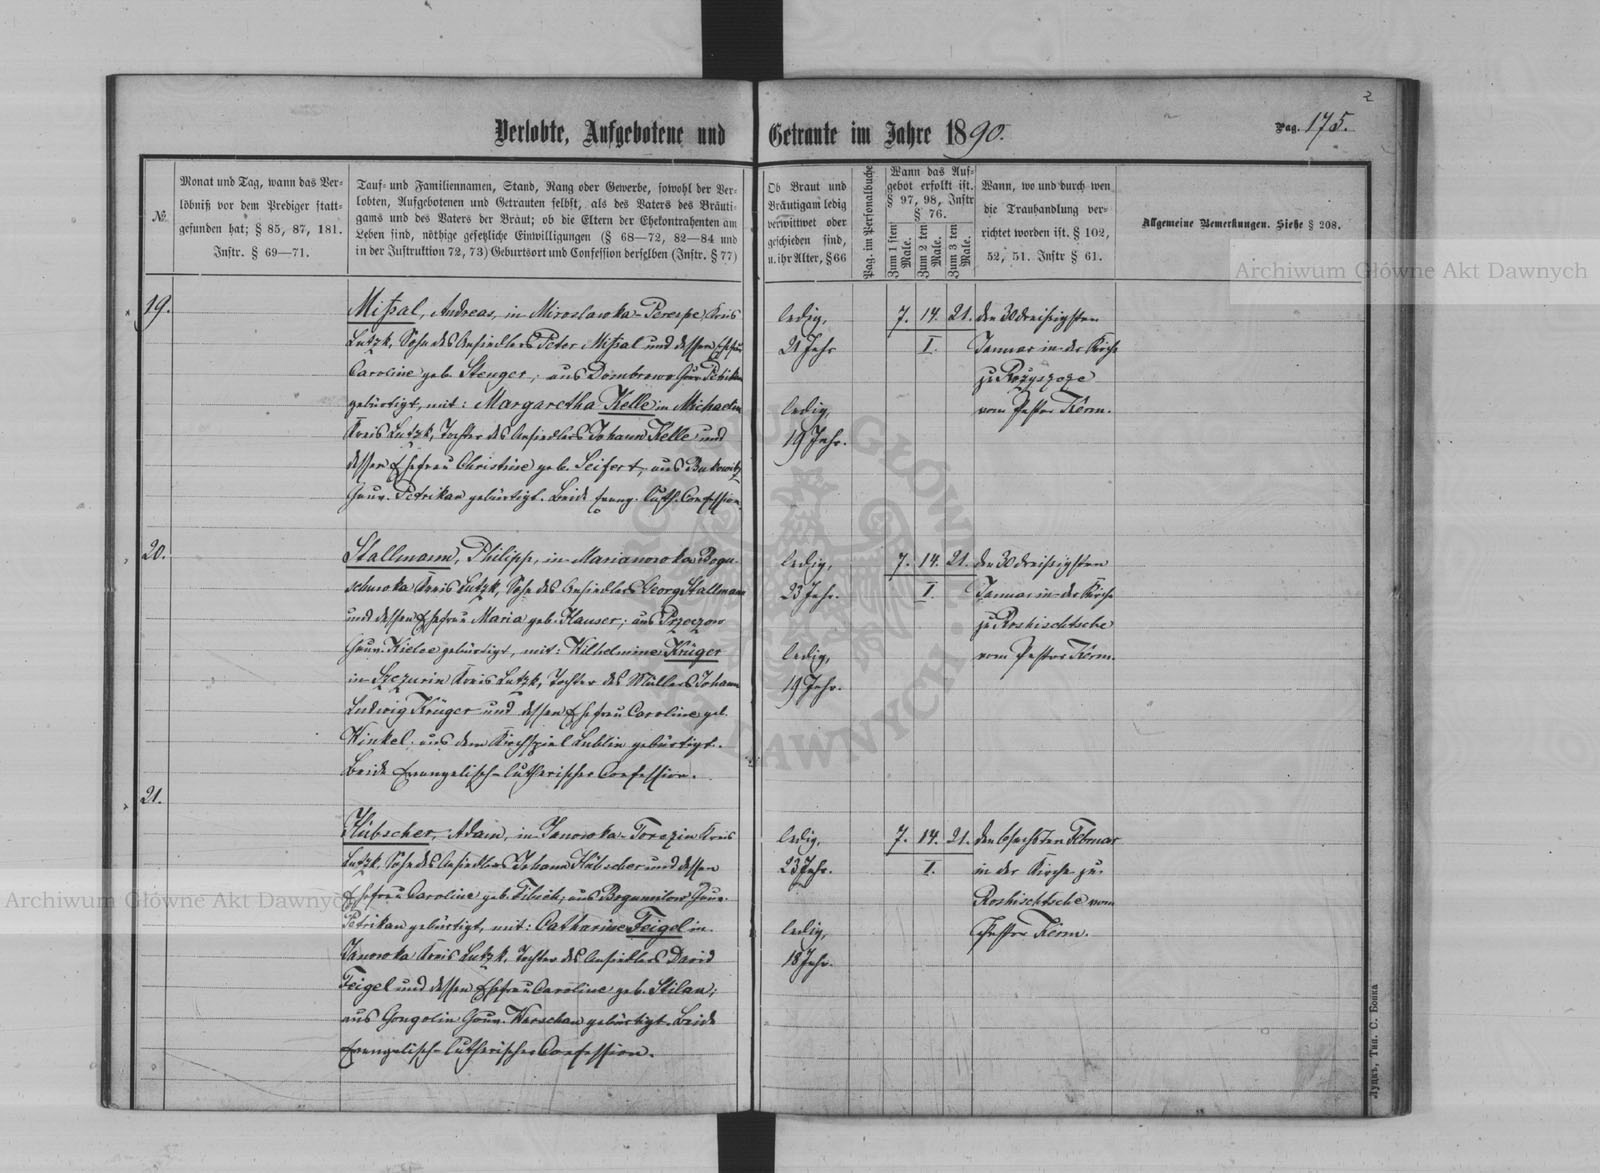 2
Verlobte, Aufgebotene und Getraute im Jahre 1890. Pag. 175.
№
Monat und Tag, wann das Ver-
löbniß vor dem Prediger statt-
gefunden hat; § 85, 87, 181.
Instr. § 69—71.
Tauf- und Familiennamen, Stand, Rang oder Gewerbe, sowohl der Ver-
lobten, Aufgebotenen und Getrauten selbst, als des Vaters des Bräuti-
gams und des Vaters der Bräut; ob die Eltern der Ehekontrahenten am
Leben sind, nöthige gesetzliche Einwilligungen (§ 68—72, 82—84 und
in der Instruktion 72, 73) Geburtsort und Confession derselben (Instr. § 77)
Ob Braut und
Bräutigam ledig
verwittwet oder
geschieden sind,
u. ihr Alter, § 66
Pag. im Personalbuche
Wann das Auf-
gebot erfolkt ist.
§ 97, 98, Instr
§ 76.
Zum 1 sten Male.
Zum 2 ten Male.
Zum 3 ten Male.
Wann, wo und durch wen
die Trauhandlung ver-
richtet worden ist. § 102,
52, 51. Instr § 61.
Allgemeine Bemerkungen. Siehe § 208.
19.
Mißal, Andreas, in Miroslawka-Perespe, Kreis
Lutzk, Sohn des Ansiedlers Peter Mißal und dessen Ehefrau
Caroline geb. Stenger; aus Dombrowa Gouv. Petrikau
gebürtigt, mit: Margaretha Kelle in Michaelin
Kreis Lutzk, Tochter des Ansiedlers Johann Kelle und
dessen Ehefrau Christine geb. Seifert, aus Bukowitz
Gouv. Petrikau gebürtigt. Beide Evang. Luth. Confession.
ledig,
21 Jahr
ledig,
19 Jahr.
7. 14. 21.
I.
den 30 dreißigsten
Januar in der Kirche
zu Rozyszcze
vom Pastor Kerm.
20.
Stallmann, Philipp, in Marianowka Bogu-
schowka Kreis Lutzk, Sohn des Ansiedlers Georg Stallmann
und dessen Ehefrau Maria geb. Hauser; aus
Gouv. Kielce gebürtigt, mit: Wilhelmine Krüger
in Szczurin Kreis Lutzk, Tochter des Müllers Johann
Ludwig Krüger und dessen Ehefrau Caroline geb.
Winkel, aus dem Kirchspiel Lublin gebürtigt.
Beide Evangelisch-Lutherischer Confession.
ledig,
23 Jahr.
ledig,
19 Jahr.
7. 14. 21.
I.
den 30 dreißigsten
Januar in der Kirche
zu Roshischtsche
vom Pastor Kerm.
21.
Hübscher, Adam, in Janowka-Torczin Kreis
Lutzk, Sohn des Ansiedlers Johann Hübscher und dessen
Ehefrau Caroline geb. aus Bogumilow Gouv.
Petrikau gebürtigt, mit: Catharine Feigel in
Janowka Kreis Lutzk, Tochter des Ansiedlers David
Feigel und dessen Ehefrau Caroline geb. Stilau;
aus Gongolin Gouv. Warschau gebürtigt. Beide
Evangelisch-Lutherischer Confession.
ledig,
23 Jahr.
ledig,
18 Jahr.
7. 14. 21.
I.
den 6 sechsten Februar
in der Kirche zu
Roshischtsche vom
Pastor Kerm.
Луцкъ, Тип. С. Бонка
Archiwum Główne Akt Dawnych
Archiwum Główne Akt Dawnych